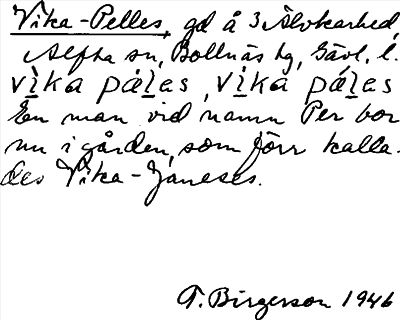 Vika-Pelles, gd å 3 Älvkarhed,
Alfta sn, Bollnäs tg, Gävl. l.
vìka pάḷes, víka pάḷes
En man vid namn Per bor
nu i gården, som förr kalla-
des Vika-Janeses.
T. Birgerson 1946